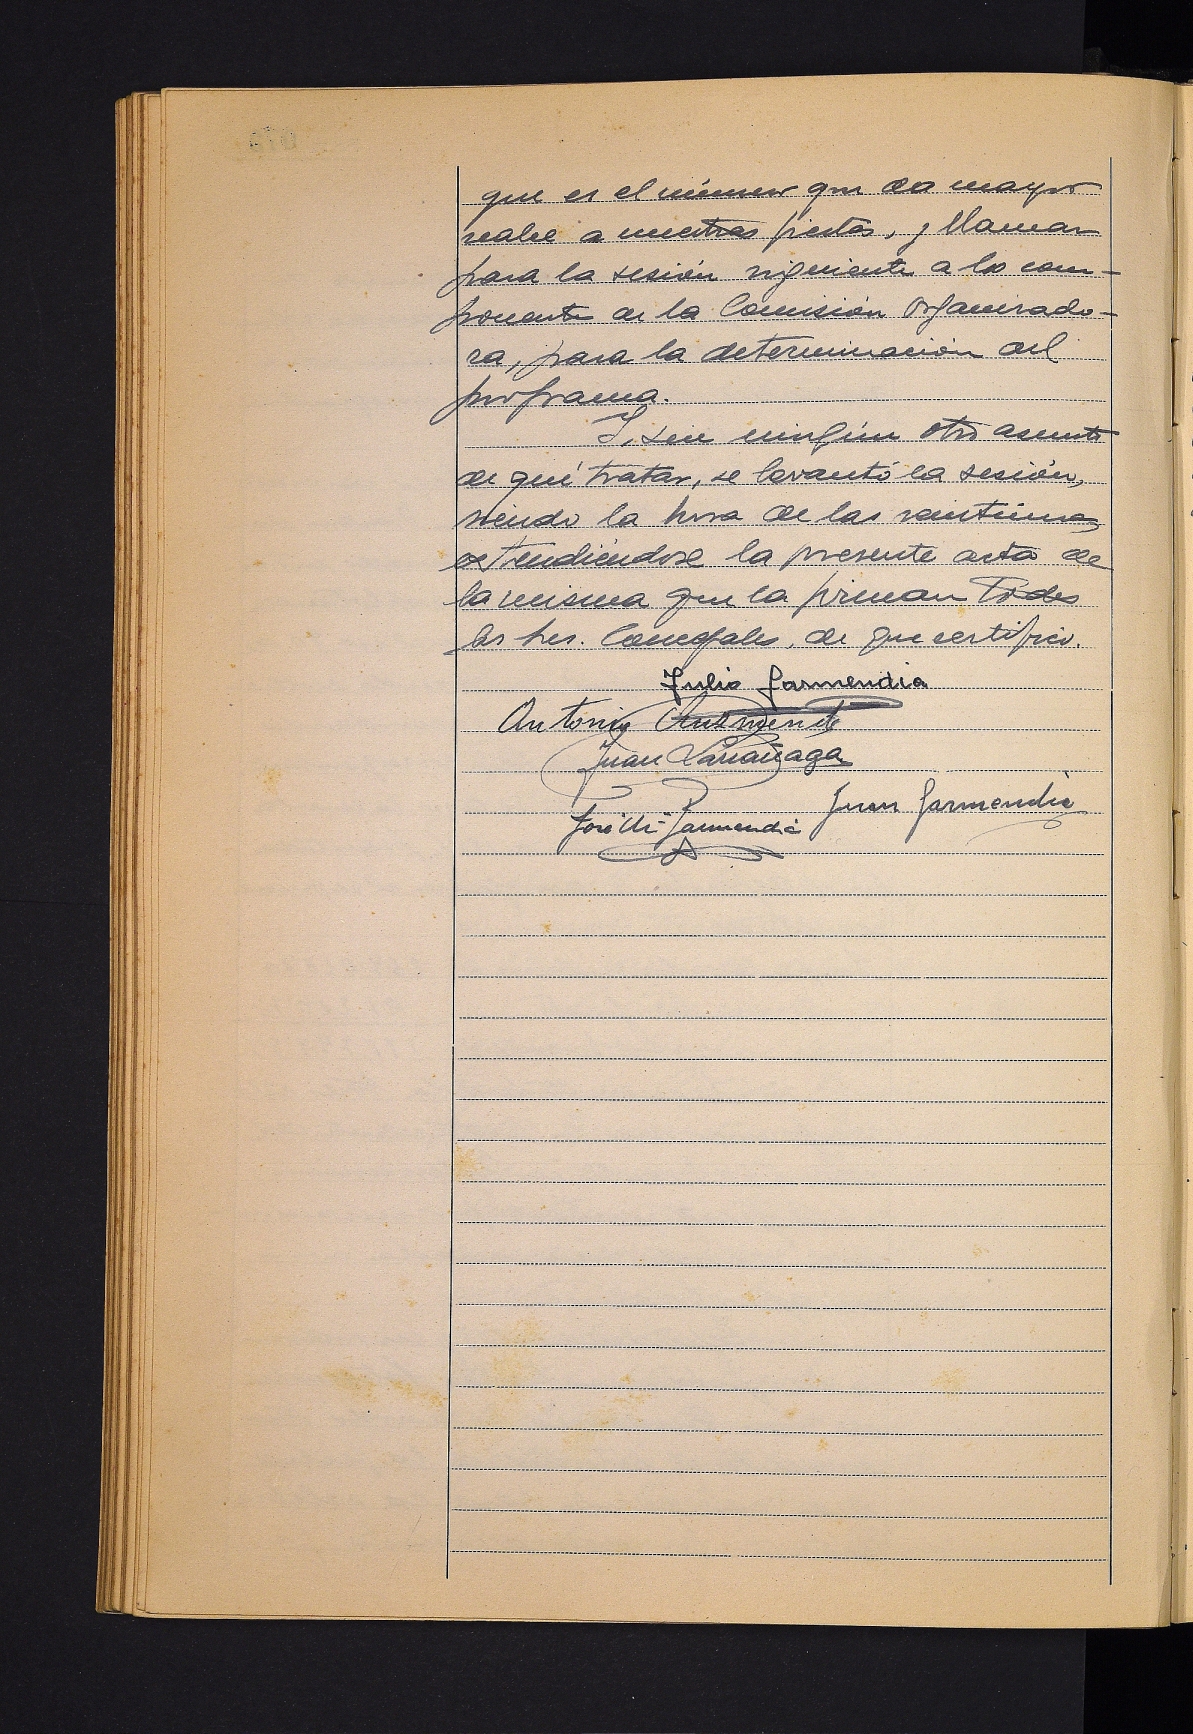 que es el número que da mayor
realce a nuestras fiestas, y llamar
para la sesión siguiente a los com-
ponentes de la Comisión Organizado-
ra, para la determinación del
programa.
Y, sin ningún otro asunto
de qué tratar, se levantó la sesión,
siendo la hora de las veintiuna,
extendiéndose la presente acta de
la misma que la firman todos
los Sres. Concejales, de que certifico.
Julio Garmendia
Antonio Auzmendi
Juan Larrañaga
Juan Garmendia
José Mª Garmendia